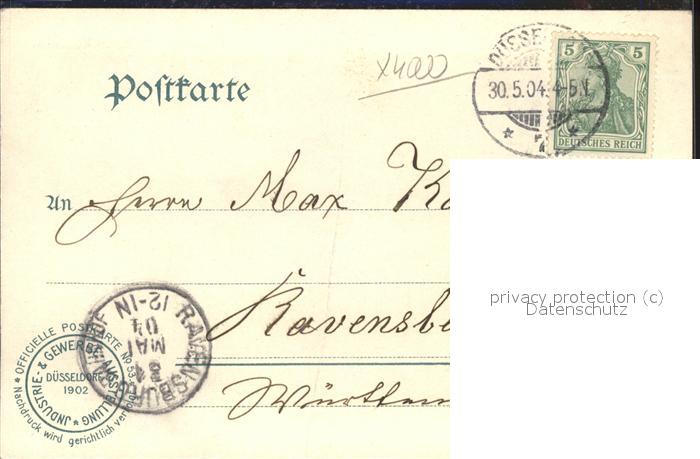 x4000
Postkarte
DÜSSE
30.5.04. 4-5 N.
* 7 *
5 5
DEUTSCHES REICH
An Herrn Max
privacy protection (c)
Datenschutz
Ravensb
Württem
RAVENSBURG
12-1N
04
MAI
OFFICIELLE POSTKARTE No 53
JNDUSTRIE- & GEWERBE AUSSTELLUNG
DÜSSELDORF
1902
Nachdruck wird gerichtlich verfolgt